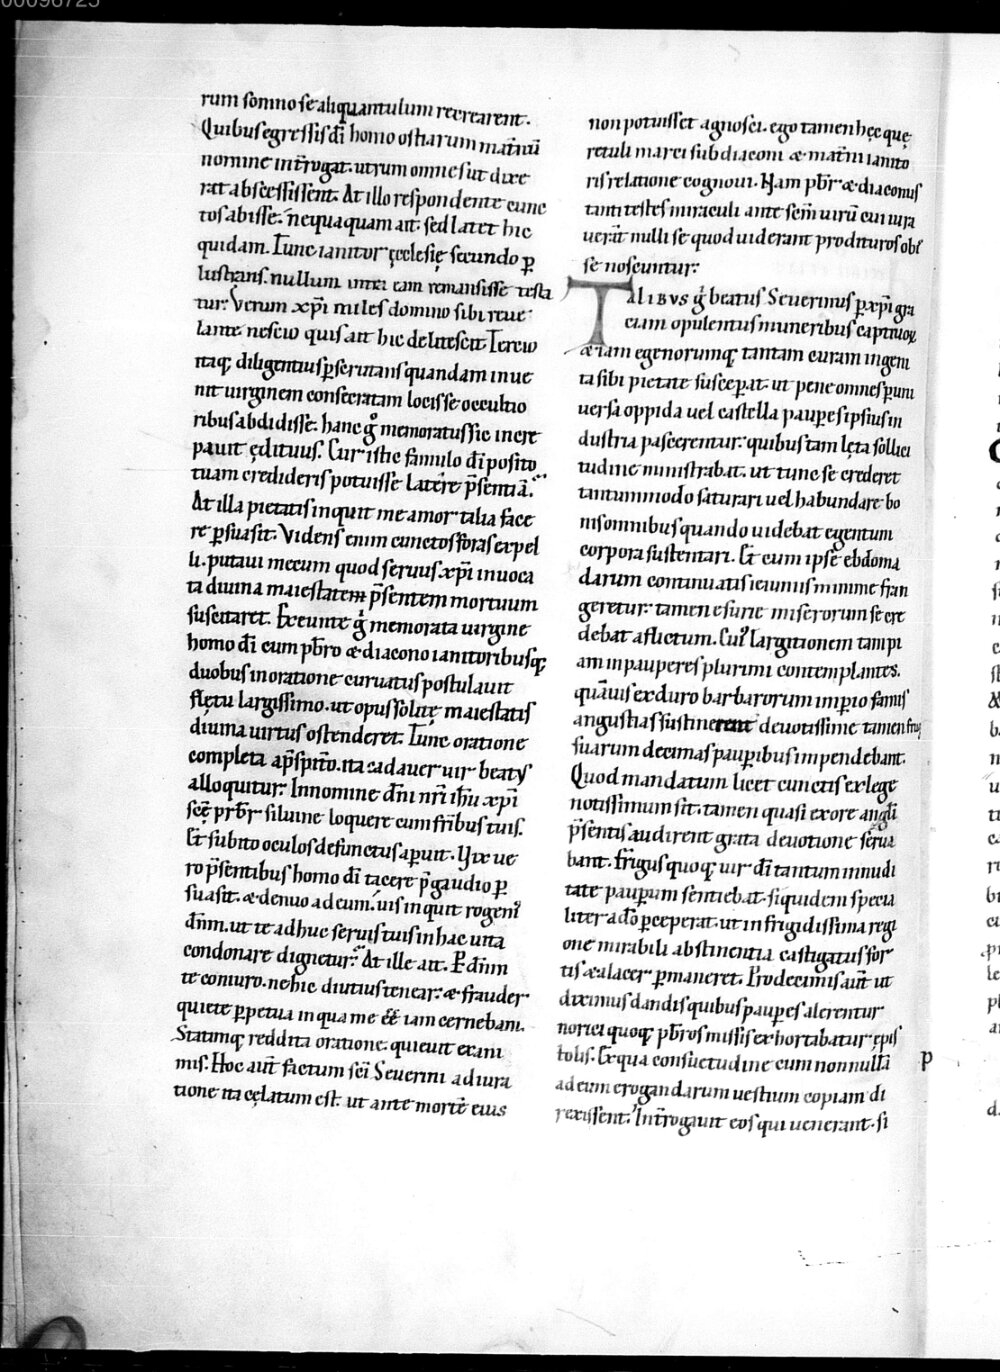 00096725
rum somno se aliquantulum recrearent.
Quibus egressis dī homo ostiarum mat̄nū
nomine int̄rogat. utrum omnes ut dixe
rat abscessissent. At illo respondente cunc
tos abisse. nequaquam ait. sed latet hic
quidam. Tunc ianitor ęcclesię secundo p̄
lustrans. nullum intra eam remansisse testa
tur. Verum xp̄i miles domino sibi reue
lante. nescio quis ait hic delitescit. Tercio
itaq; diligentius p̄scrutans quandam inue
nit uirginem consecratam locis se occultio
ribus abdidisse. hanc ḡ memoratus sic incre
pauit ędituus. Cur istic famulo dī posito
tuam credideris potuisse latēre p̄sentiā.
At illa pietatis inquit me amor talia face
re p̄suasit. Videns enim cunctos foras expel
li. putaui mecum quod seruus xp̄i inuoca
ta diuina maiestatem p̄sentem mortuum
suscitaret. Exeunte ḡ memorata uirgine
homo dī cum pb̄ro & diacono ianitoribusq;
duobus in oratione curuatus postulauit
flętu largissimo. ut opus solitę maiestatis
diuina uirtus ostenderet. Tunc oratione
completa a p̄sp̄ito. ita cadauer uir beatꝰ
alloquitur. In nomine dn̄i nr̄i ih̄u xp̄i
scē prb̄r siluine loquere cum fr̄ibus tuis.
Et subito oculos defunctus ap̄uit. Vix ue
ro p̄sentibus homo dī tacere p̄ gaudio p̄
suasit. & denuo ad eum. uis inquit rogemꝰ
dn̄m. ut te adhuc seruis tuis in hac uita
condonare dignetur. At ille ait. P dn̄m
te coniuro. ne hic diutius tenear. & frauder
quiete p̄petua in qua me e͞e iam cernebam.
Statimq; reddita oratione. quieuit exani
mis. Hoc aut̄ factum scī Seuerini adiura
tione ita cęlatum est. ut ante mortē eius
non potuisset agnosci. ego tamen hęc quę
retuli marci subdiaconi & mat̄ni ianito
ris relatione cognoui. Nam pb̄r & diaconus
tanti testes miraculi ante scm̄ uirū cui iura
uerāt nulli se quod uiderant prodituros obi
se noscuntur.
TALIBVS ḡ beatus Seuerinus p̄ xp̄i gra
ciam opulentus muneribus captiuoꝝ
& iam egenorumq; tantam curam ingeni
ta sibi pietate suscep̄at. ut pene omnes p̄ uni
uersa oppida uel castella paup̄es ipsius in
dustria pascerentur. quibus tam lęta sollici
tudine ministrabat. ut tunc se crederet
tantummodo saturari uel habundare bo
nis omnibus quando uidebat egentum
corpora sustentari. Et cum ipsē ebdoma
darum continuatis ieiuniis minime fran
geretur. tamen esurie miserorum se cre
debat aflictum. Cuiꝰ largitionem tam pi
am in pauperes plurimi contemplantes.
quāuis ex duro barbarorum imp̄io famis
angustias sustinerent deuotissime tamen frug
suarum decimas paup̄ibus impendebant.
Quod mandatum licet cunctis ex lege
notissimum sit. tamen quasi ex ore angl̄i
p̄sentis audirent grata deuotione serua
bant. Frigus quoq; uir dī tantum in nudi
tate paup̄um sentiebat. siquidem specia
liter a dō p̄ceperat. ut in frigidissima regi
one mirabili abstinentia castigatus for
tis & alacer p̄maneret. Pro decimis aut̄ ut
diximus dandis quibus paup̄es alerentur
norici quoq; pb̄ros missis exhortabatur epis
tolis. Ex qua consuetudine cum nonnullā
ad eum erogandarum uestium copiam di
rexissent. Int̄rogauit eos qui uenerant. si
p